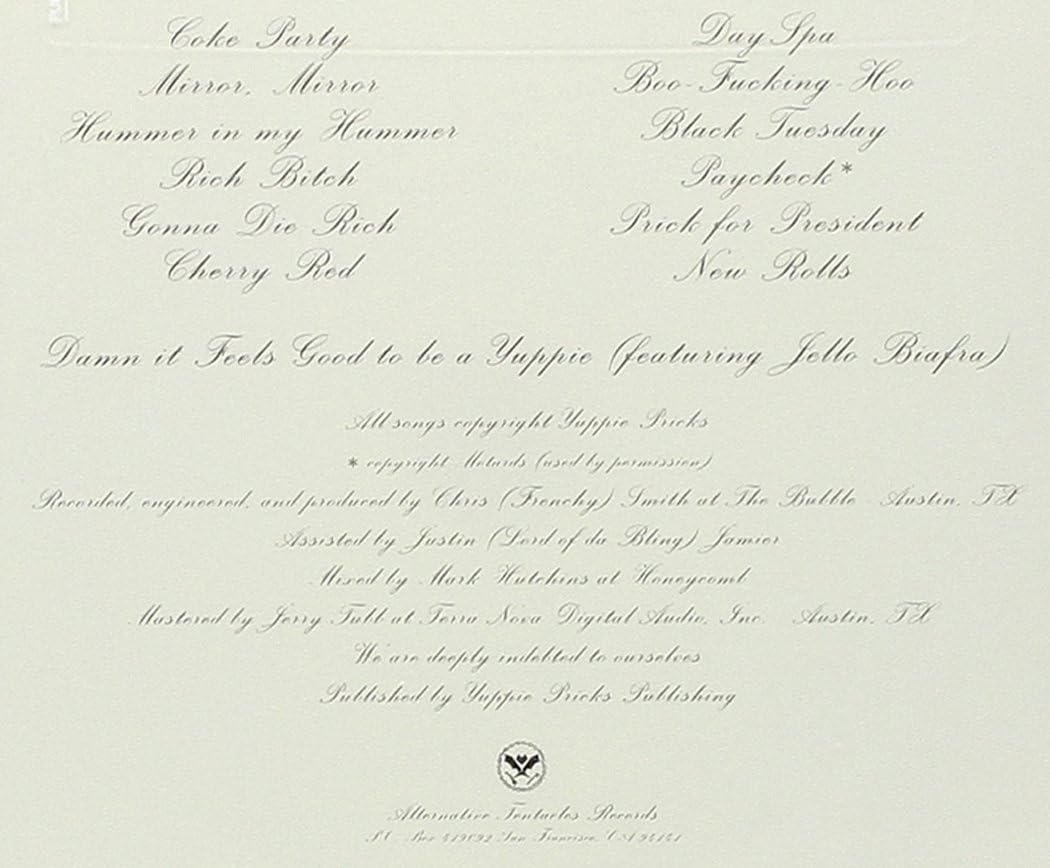 Coke Party
Mirror, Mirror
Hummer in my Hummer
Rich Bitch
Gonna Die Rich
Cherry Red
Day Spa
Boo-Fucking-Hoo
Black Tuesday
Paycheck*
Prick for President
New Rolls
Damn it Feels Good to be a Yuppie (featuring Jello Biafra)
All songs copyright Yuppie Pricks
* copyright Motards (used by permission)
Recorded, engineered, and produced by Chris (Frenchy) Smith at The Bubble - Austin, TX
Assisted by Justin (Lord of da Bling) Jamier
Mixed by Mark Hutchins at Honeycomb
Mastered by Jerry Tubb at Terra Nova Digital Audio, Inc. Austin, TX
We are deeply indebted to ourselves
Published by Yuppie Pricks Publishing
Alternative Tentacles Records
P.O. Box 419092 San Francisco, CA 94141